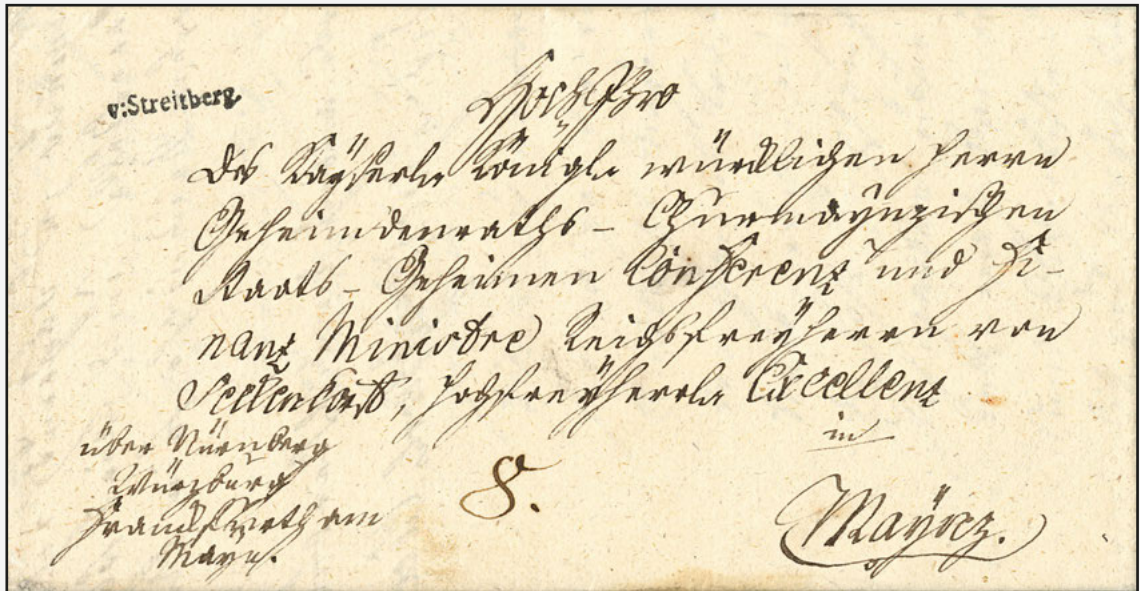 v:Streitberg
Hoch Ihro
Des Kayserln Königln würcklichen Herrn
Geheimdenraths - Churmaynzischen
Staats - Geheimen Conferenz und Fi-
nanz Ministre Reichsfreyherrn von
hochfreyherrln Excellenz
in
über Nürnberg
Würzburg
Franckfurth am
Mayn.
8.
Maynz.